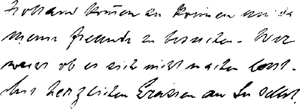 Holland können zu kommen um die
meine Freunde zu besuchen. Wer
weiss ob es sich nicht machen lässt.
Mit herzlichen Grüssen an Sie selbst